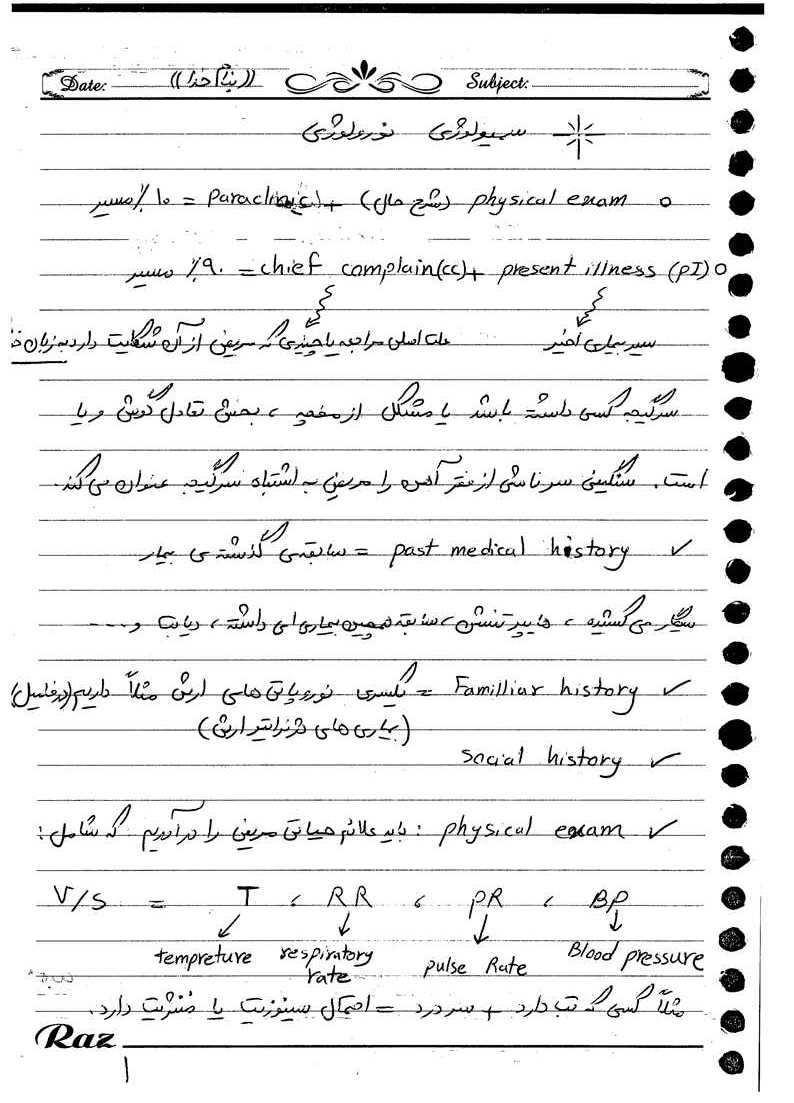 Date: ((بنام خدا)) Subject:
سمیولوژی نورولوژی
o physical exam (شرح حال) + Paraclinic = ۱۰٪ مسیر
o chief complain(cc) + present illness (PI) = ۹۰٪ مسیر
سیر بیماری اخیر علت اصلی مراجعه یا چیزی که مریض از آن شکایت دارد به زبان
سرگیجه کسی داشته باشد یا مشکل از مخچه ، بخش تعادل گوش و یا
است. سنگینی سر ناشی از فقر آهن را مریض به اشتباه سرگیجه عنوان می کند.
✓ past medical history = سابقه ی گذشته ی بیمار
سیگار می کشیده ، هایپرتنشن ، سابقه همچین بیماری ای داشته ، دیابت و ....
✓ Familliar history = یکسری نوروپاتی های ارثی مثلاً داریم (در فامیل)
(بیماری های دژنراتیو ارثی)
✓ social history
✓ physical exam : باید علائم حیاتی مریض را درآوریم که شامل :
V/S = T ، RR ، PR ، BP
tempreture respiratory rate pulse Rate Blood pressure
مثلاً کسی که تب دارد + سردرد = احتمال سینوزیت یا مننژیت دارد.
Raz
1